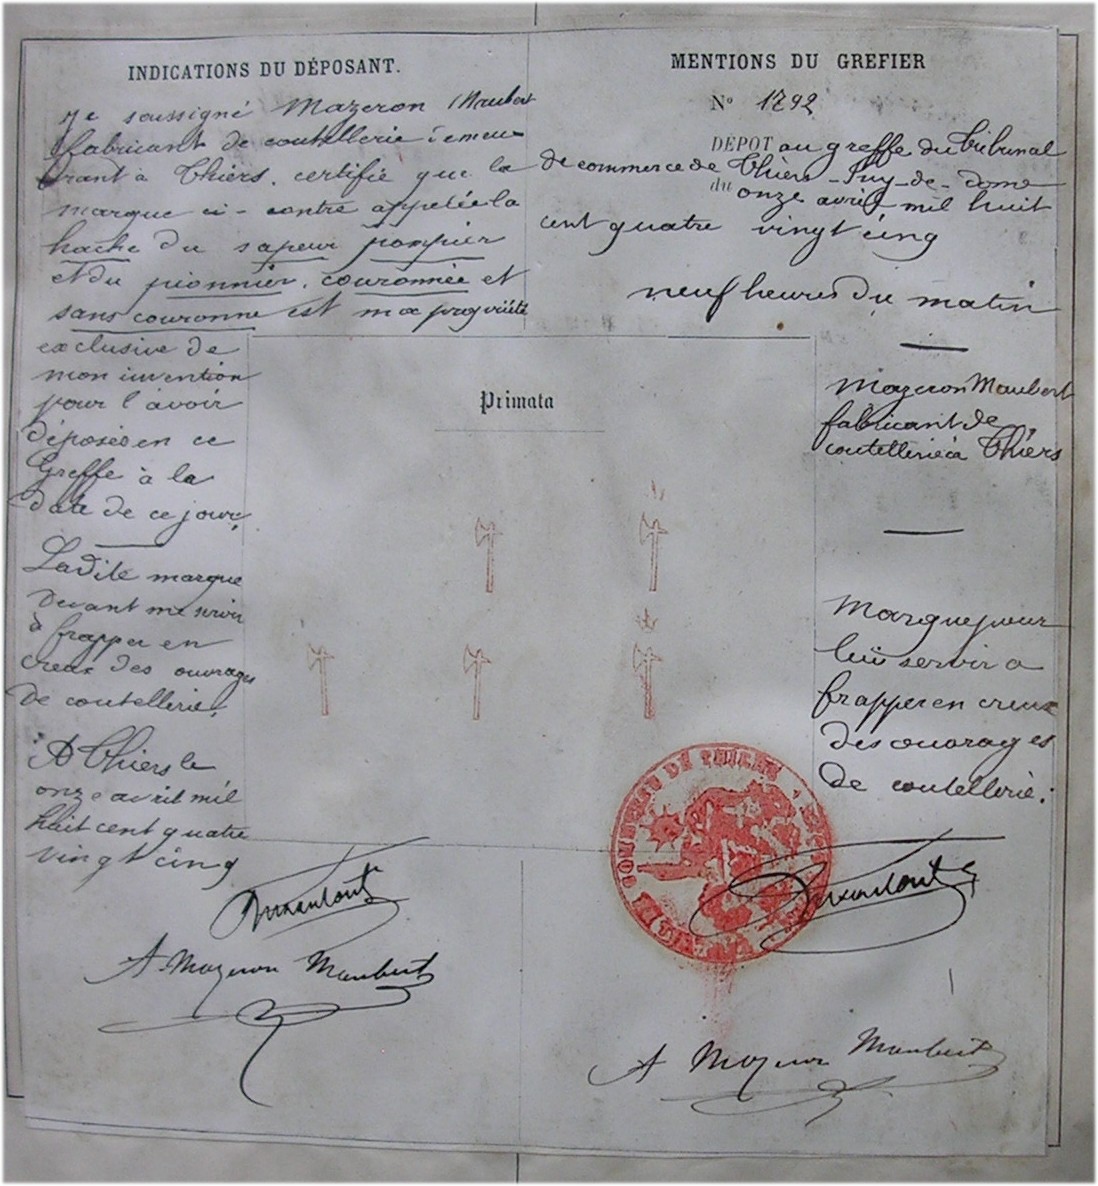 INDICATIONS DU DÉPOSANT.
Je soussigné Mazeron Maubert
fabricant de coutellerie demeu-
rant à Thiers, certifie que la
marque ci-contre appelée la
hache du sapeur pompier
et du pionnier, couronnée et
sans couronne est ma propriété
exclusive de
mon invention
pour l'avoir
déposée en ce
Greffe à la
date de ce jour,
Ladite marque
devant me servir
à frapper en
creux des ouvrages
de coutellerie,
A Thiers le
onze avril mil
huit cent quatre
vingt cinq
A. Mazeron Maubert
Primata
MENTIONS DU GREFIER
N° 1292
DÉPOT au greffe du Tribunal
de commerce de Thiers - Puy-de-dome
du onze avril mil huit
cent quatre vingt cinq
neuf heures du matin
Mazeron Maubert
fabricant de
coutellerie à Thiers
Marque pour
lui servir a
frapper en creux
des ouvrages
de coutellerie.
COMMERCE DE THIERS
A Mazeron Maubert